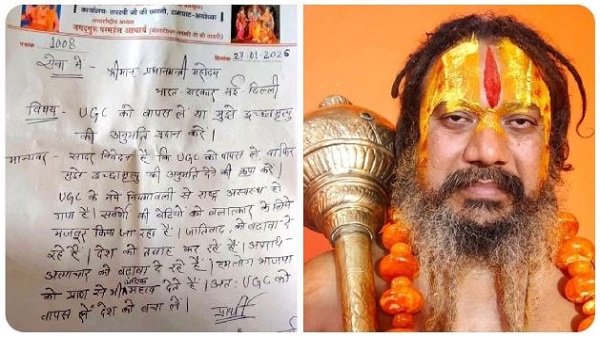 कार्यालय: तपस्वी जी की छावनी, रामघाट-अयोध्या
जगद्गुरु परमहंस आचार्य
1008
दिनांक 27-01-2026
सेवा में - श्रीमान् प्रधानमंत्री महोदय
भारत सरकार नई दिल्ली
विषय- UGC को वापस ले या मुझे इच्छामृत्यु
की अनुमति प्रदान करें।
मान्यवर - सादर निवेदन है कि UGC को वापस ले, या फिर
मुझे इच्छामृत्यु की अनुमति देने की कृपा करें।
UGC के नये नियमावली से राष्ट्र अस्वस्थ हो
गया है। सवर्णों की बेटियों को बलात्कार के लिये
मजबूर किया जा रहा है। जातिवाद को बढावा दे
रहे हैं। देश को तबाह कर रहे हैं। अपराध-
अत्याचार को बढावा दे रहे हैं। हमलोग भाजपा
को प्राण से भी अधिक महत्व देते हैं। अतः UGC को
वापस ले देश को बचा ले।
प्रार्थी